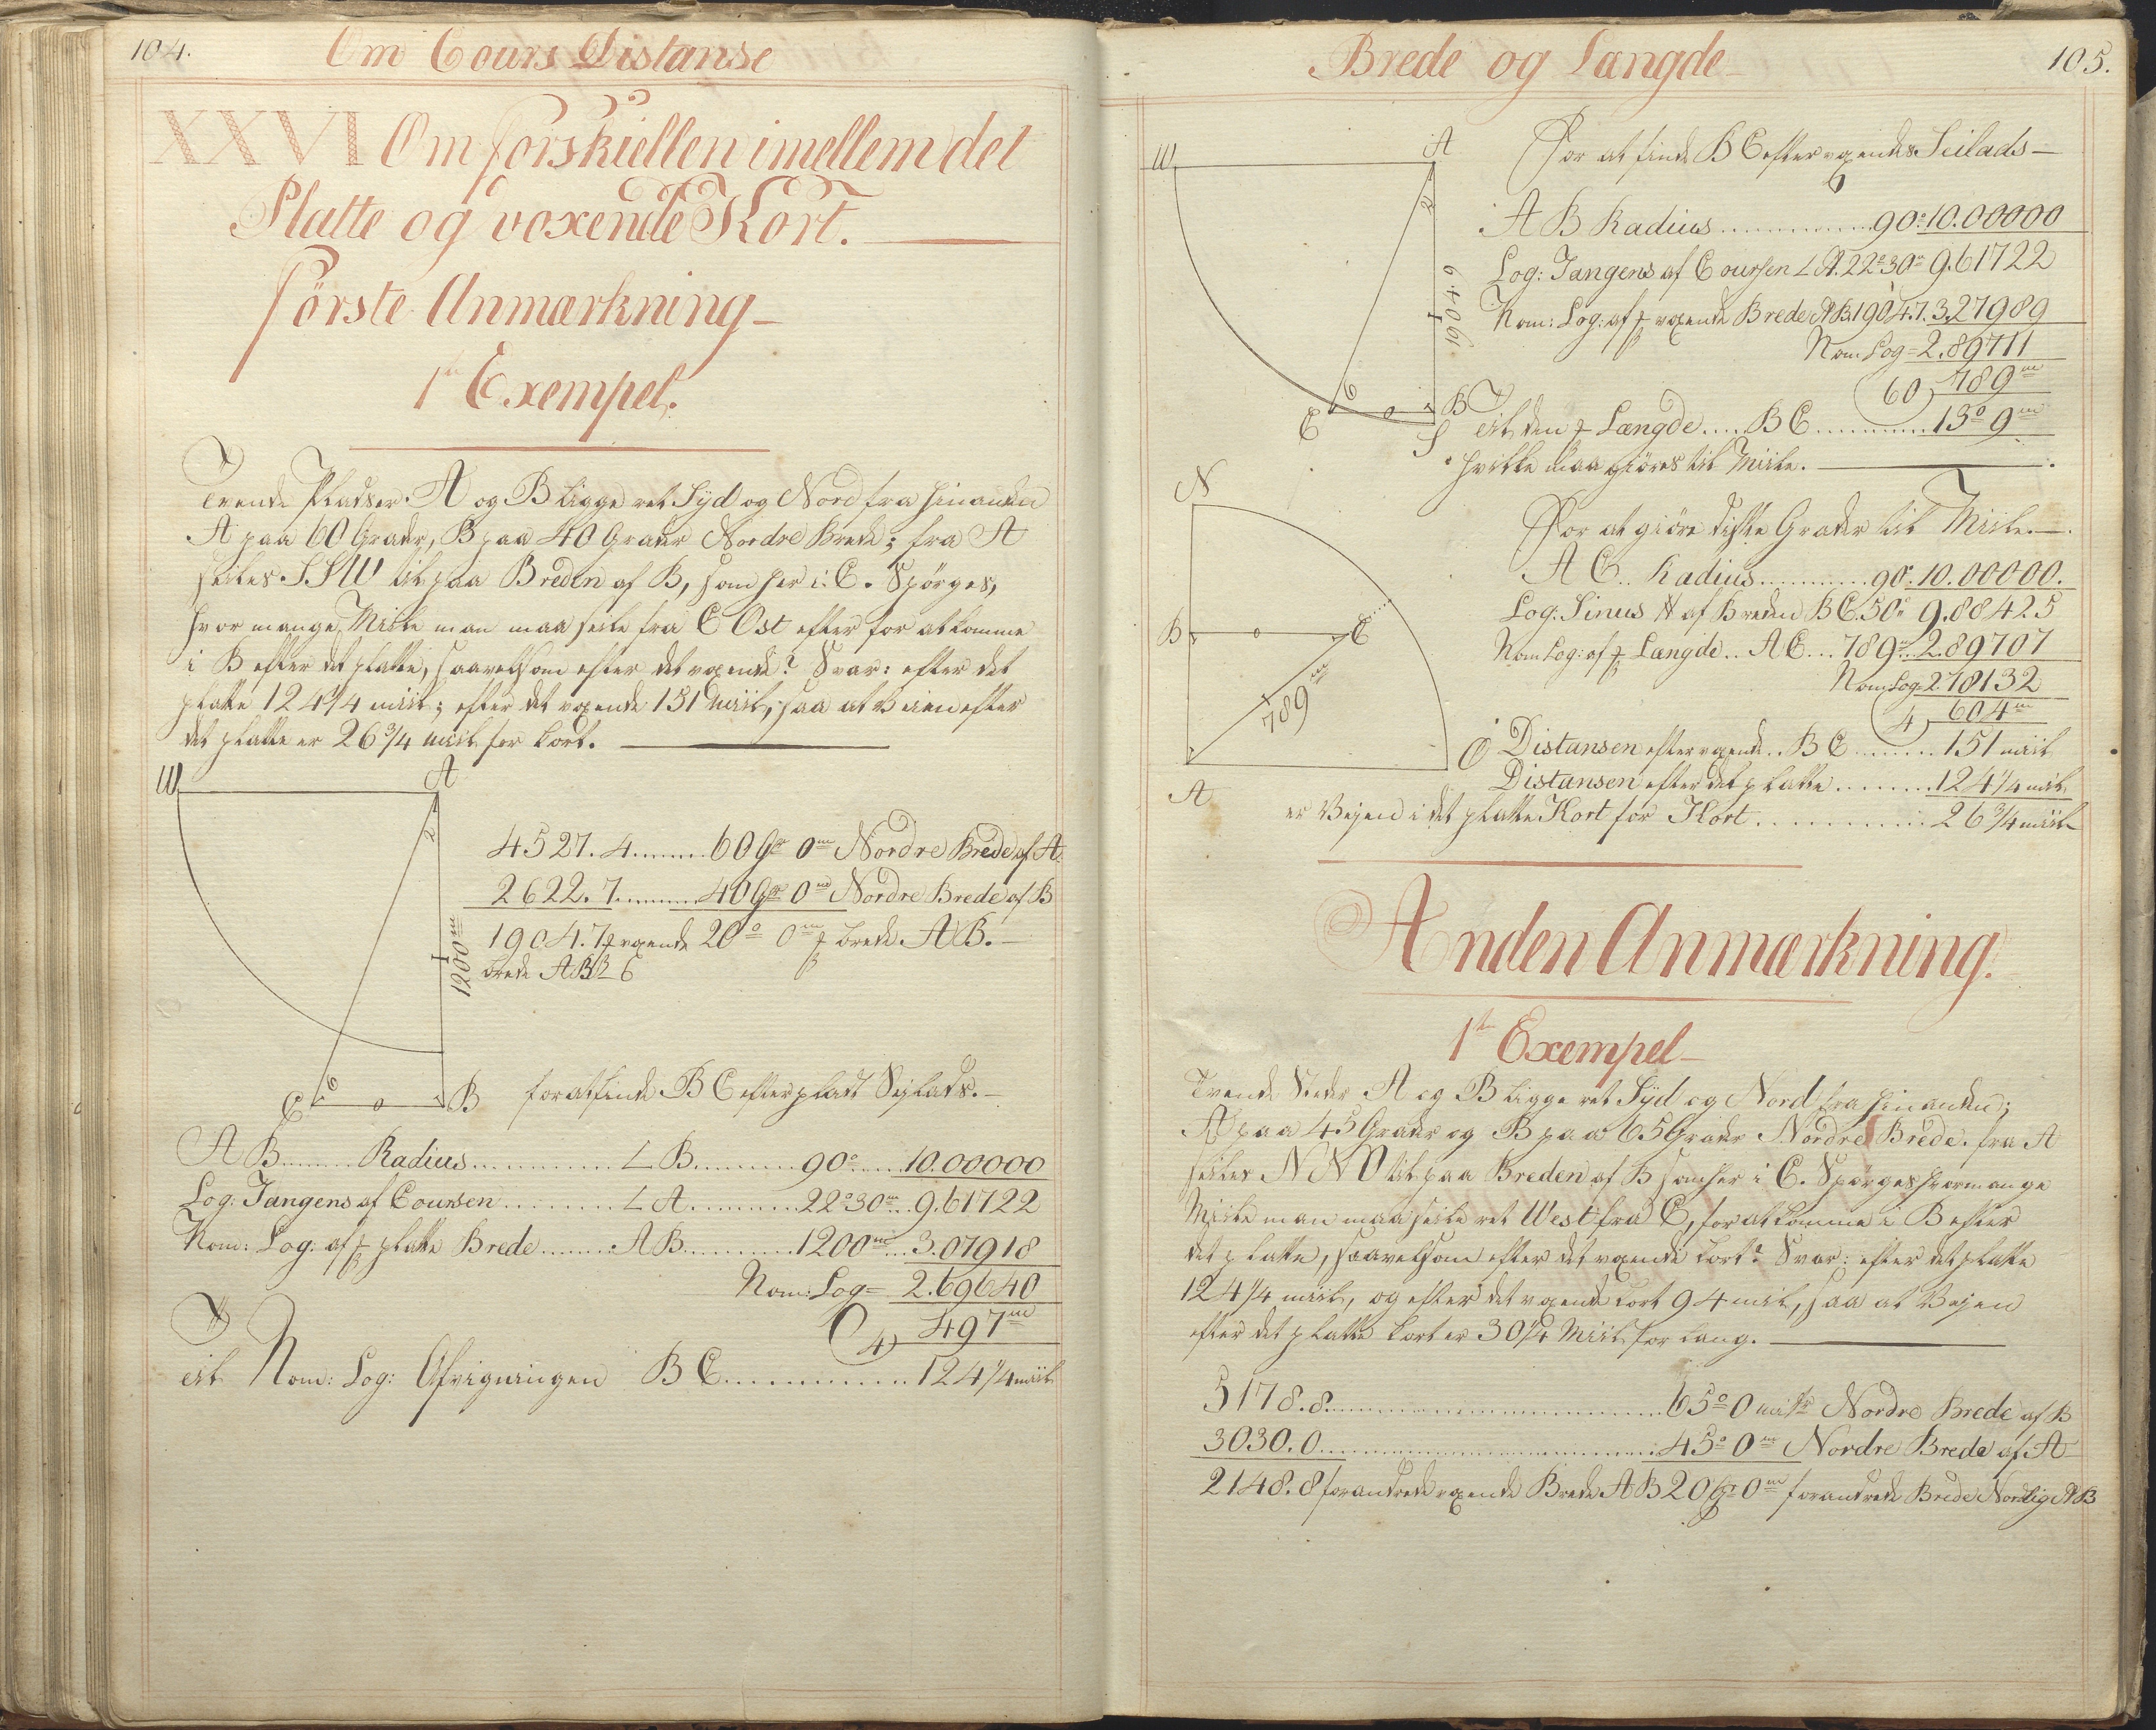 104.
Om Cours Distanse
XXVI Om forskiellen imellem det
Platte og voxende Kort.
förste Anmærkning
1te Exempel.
Tvende Pladser A og B ligge ret Syd og Nord fra hinanden
A paa 60 Grader, B paa 40 Grader Nordre Brede; fra A
seiles SSW til paa Breden af B, som her i C. Spörges,
hvor mange Miile man maa seile fra C Ost efter for at komme
i B efter det platte, saavelsom efter det voxende? Svar: efter det
platte 124 1/4 miil; efter det voxende 151 miil, saa at Veien efter
det platte er 26 3/4 miil for kort.
W
A
2
1200m
C
6
o
B
4527.4........60 Gr 0m Nordre Brede af A
2622.7........40 Gr 0m Nordre Brede af B
1904.7 f voxende 20° 0m f brede AB.
brede AB
for at finde BC efter platt Sejlads.
AB........Radius..............∠B..........90°.....10.00000
Log: Tangens af Coursen.........∠A..........22°30m...9.61722
Nom: Log: af f platte Brede........AB..........1200m...3.07918
Nom: Log= 2.69640
4) 497m
Til Nom: Log: Afvigningen BC.............124 1/4 miil
Brede og Længde
105.
W
A
2
1904.6
C
6
o
B
S
For at finde BC efter voxendes Seilads
AB Radius..............90°.10.00000
Log: Tangens af Coursen ∠A.22°30m 9.61722
Nom: Log: af f voxende Brede AB 1904.7. 3.27989
Nom Log= 2.89711
60) 789m
Til den f Længde.....BC...........13° 9m
hvilke maa giöres til Miile.
N
B
o
C
789m
A
O
For at giöre diste Grader til Miile.
AC.. Radius............90°.10.00000.
Log: Sinus af Breden BC.50° 9.88425
Nom Log: af f Længde.. AC... 789m..2.89707
Nom Log= 2.78132
4) 604m
Distansen efter voxende.. BC........151 miil
Distansen efter det platte.........124 1/4 miil
er Vejen i det platte Kort for Kort.............26 3/4 miil
Anden Anmærkning.
1te Exempel
Tvende Steder A og B ligge ret Syd og Nord fra hinanden;
A paa 45 Grader og B paa 65 Grader Nordre Brede. fra A
seiles NNO til paa Breden af B som her i C. Spörges hvormange
Miile man maa seile ret West fra C, for at komme i B efter
det platte, saavelsom efter det voxende kort? Svar: efter det platte
124 1/4 miil, og efter det voxende kort 94 miil, saa at Vejen
efter det platte kort er 30 1/4 Miil for lang.
5178.8..............................65° 0 Nordre Brede af B
3030.0..............................45° 0m Nordre Brede af A
2148.8 forandrede voxende Brede AB 20 Gr 0m forandrede Brede Nordlig AB